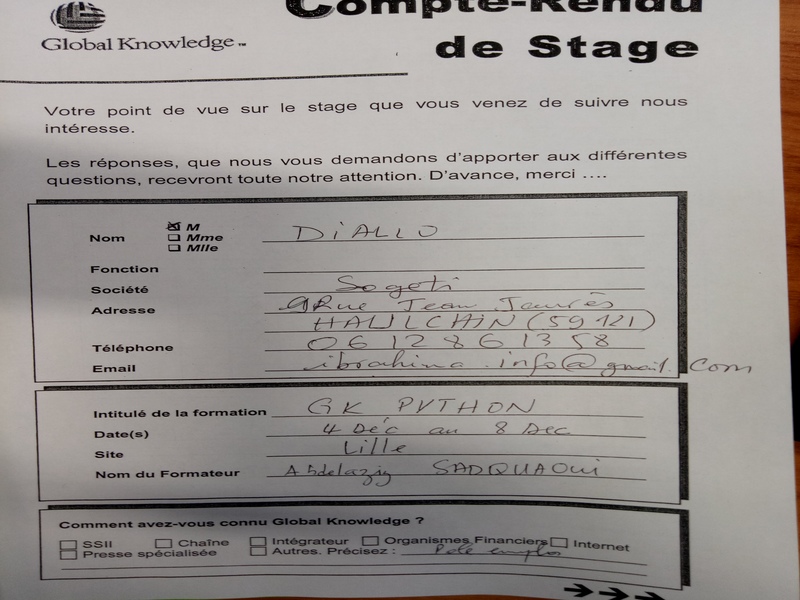 Compte-Rendu
de Stage
Global Knowledge™
Votre point de vue sur le stage que vous venez de suivre nous
intéresse.
Les réponses, que nous vous demandons d'apporter aux différentes
questions, recevront toute notre attention. D'avance, merci ....
Nom ☒ M DiALLO
☐ Mme
☐ Mlle
Fonction
Société Sogeti
Adresse 9 Rue Jean Jaurès
HAULCHIN (59121)
Téléphone 06 12 86 13 58
Email ibrahima.info@gmail.com
Intitulé de la formation GK PYTHON
Date(s) 4 Déc au 8 Dec
Site Lille
Nom du Formateur Abdelaziz SADQUAOUi
Comment avez-vous connu Global Knowledge ?
☐ SSII ☐ Chaîne ☐ Intégrateur ☐ Organismes Financiers ☐ Internet
☐ Presse spécialisée ☐ Autres. Précisez : Pole emploi